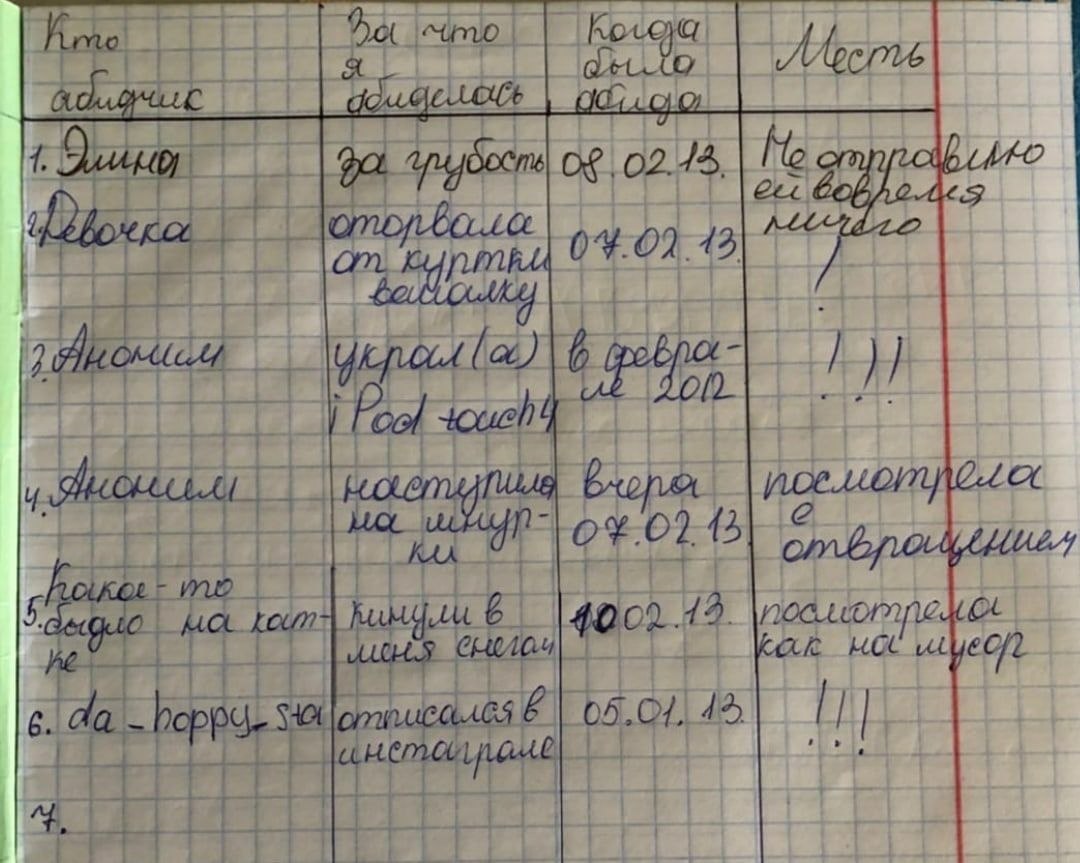 Кто абидчик
За что я абиделась
Когда была абида
Месть
1. Элина
за грубость
08.02.13.
Не отправляю ей вовремя ничего
2. Девочка
оторвала от куртки вешалку
07.02.13.
!
3. Аноним
украл(а) iPod touch 4
в февра-ле 2012
!!!
4. Аноним
наступила на шнур-ки
вчера 07.02.13.
посмотрела с отвращением
5. Какое-то быдло на кат-ке
кинули в меня снегом
10 02.13.
посмотрела как на мусор
6. da_hoppy_sta
отписался в инстаграме
05.01.13.
!!!
7.